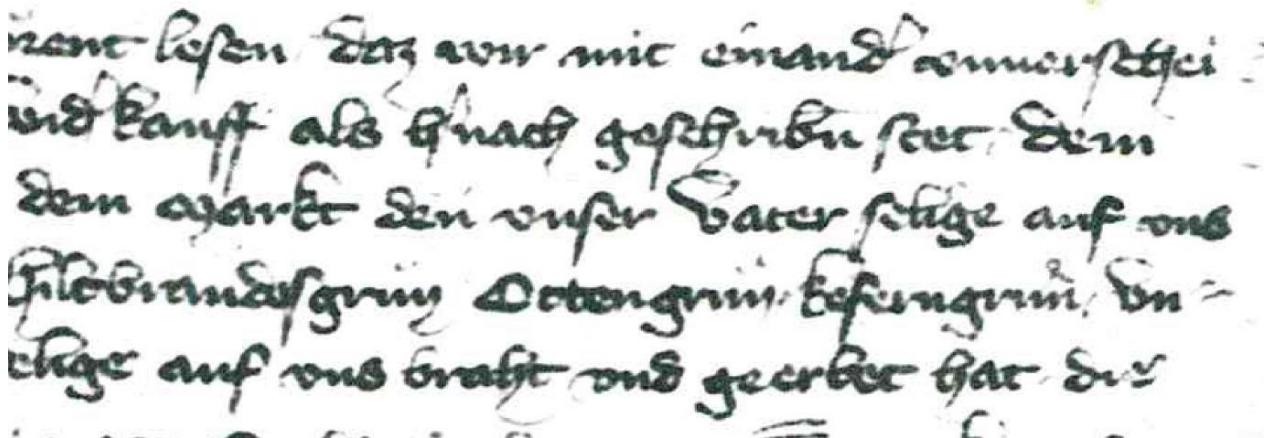 rent lesen daz wir mit einand' vnuerschei
vnd' kauff als h'nach geschribn stet dem
dem Markt den vnser Vater selige auf vns
hiltbrandesgrun Ottengrun keserngrun vn
elige auf vns braht vnd geerbet hat die